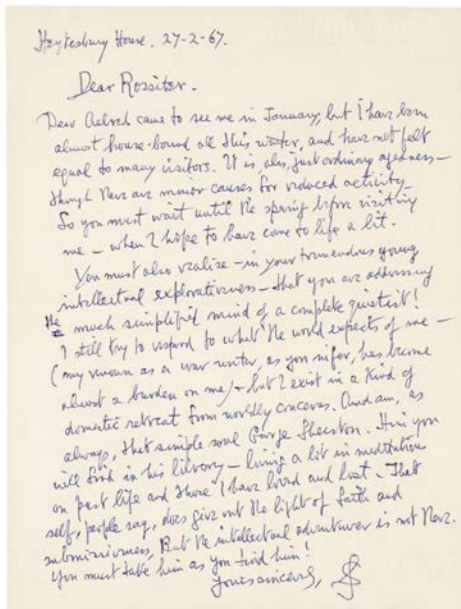 Heytesbury House. 27-2-67.
Dear Rossiter.
Dear Aelred came to see me in January, but I have been
almost house-bound all this winter, and have not felt
equal to many visitors. It is, alas, just ordinary agedness—
though there are minor causes for reduced activity.
So you must wait until the spring before visiting
me – when I hope to have come to life a bit.
You must also realize – in your tremendous young
intellectual explorativeness – that you are addressing
the much simplified mind of a complete quietist!
I still try to respond to what the world expects of me –
(my renown as a war writer, as you infer, has become
almost a burden on me) – but I exist in a kind of
domestic retreat from worldly concerns. And am, as
always, that simple soul George Sherston. Him you
will find in his library – living a lot in meditations
on past life and those I have loved and lost. That
self, people say, does give out the light of faith and
submissiveness. But the intellectual adventurer is not there.
You must take him as you find him!
Yours sincerely, SS